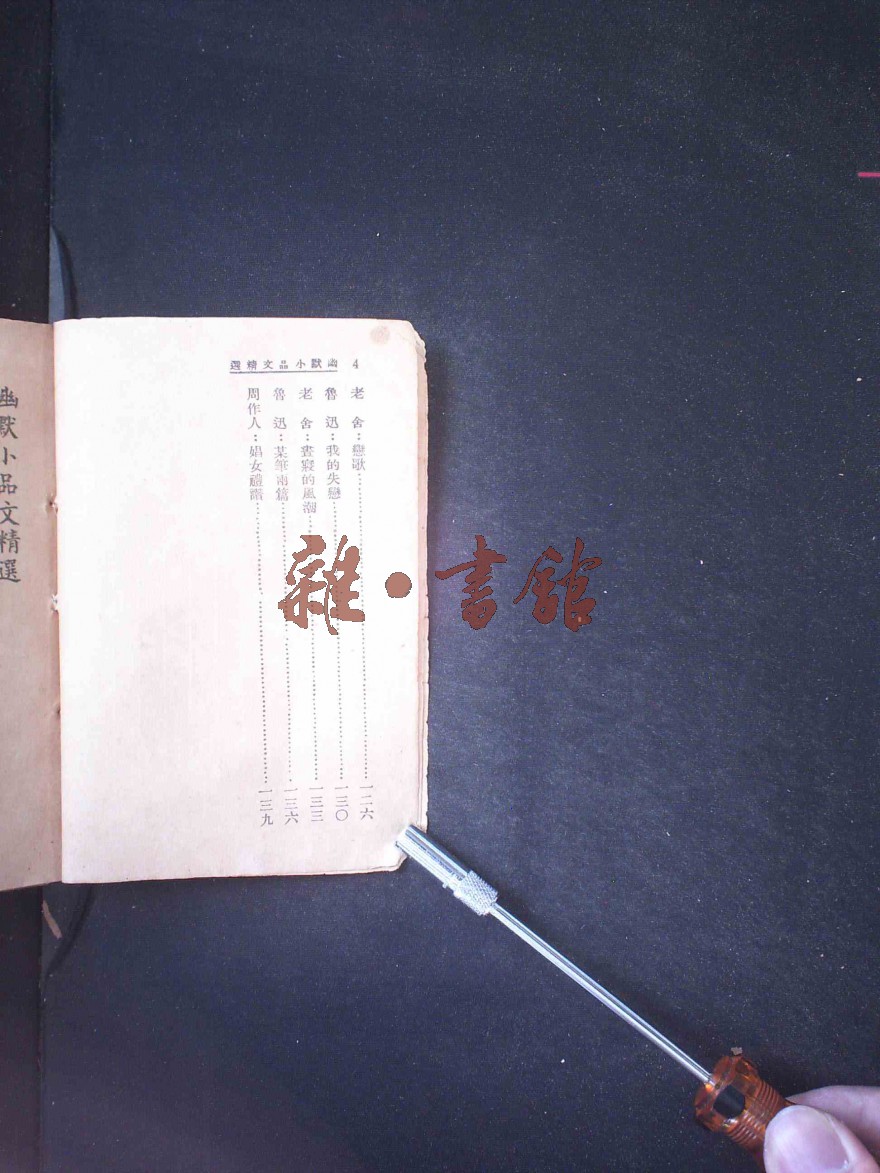 4 幽默小品文精選
老舍：戀歌……一二六
魯迅：我的失戀……一三〇
老舍：晝寢的風潮……一三三
魯迅：某筆兩篇……一三六
周作人：娼女禮讚……一三九
幽默小品文精選
雜·書館